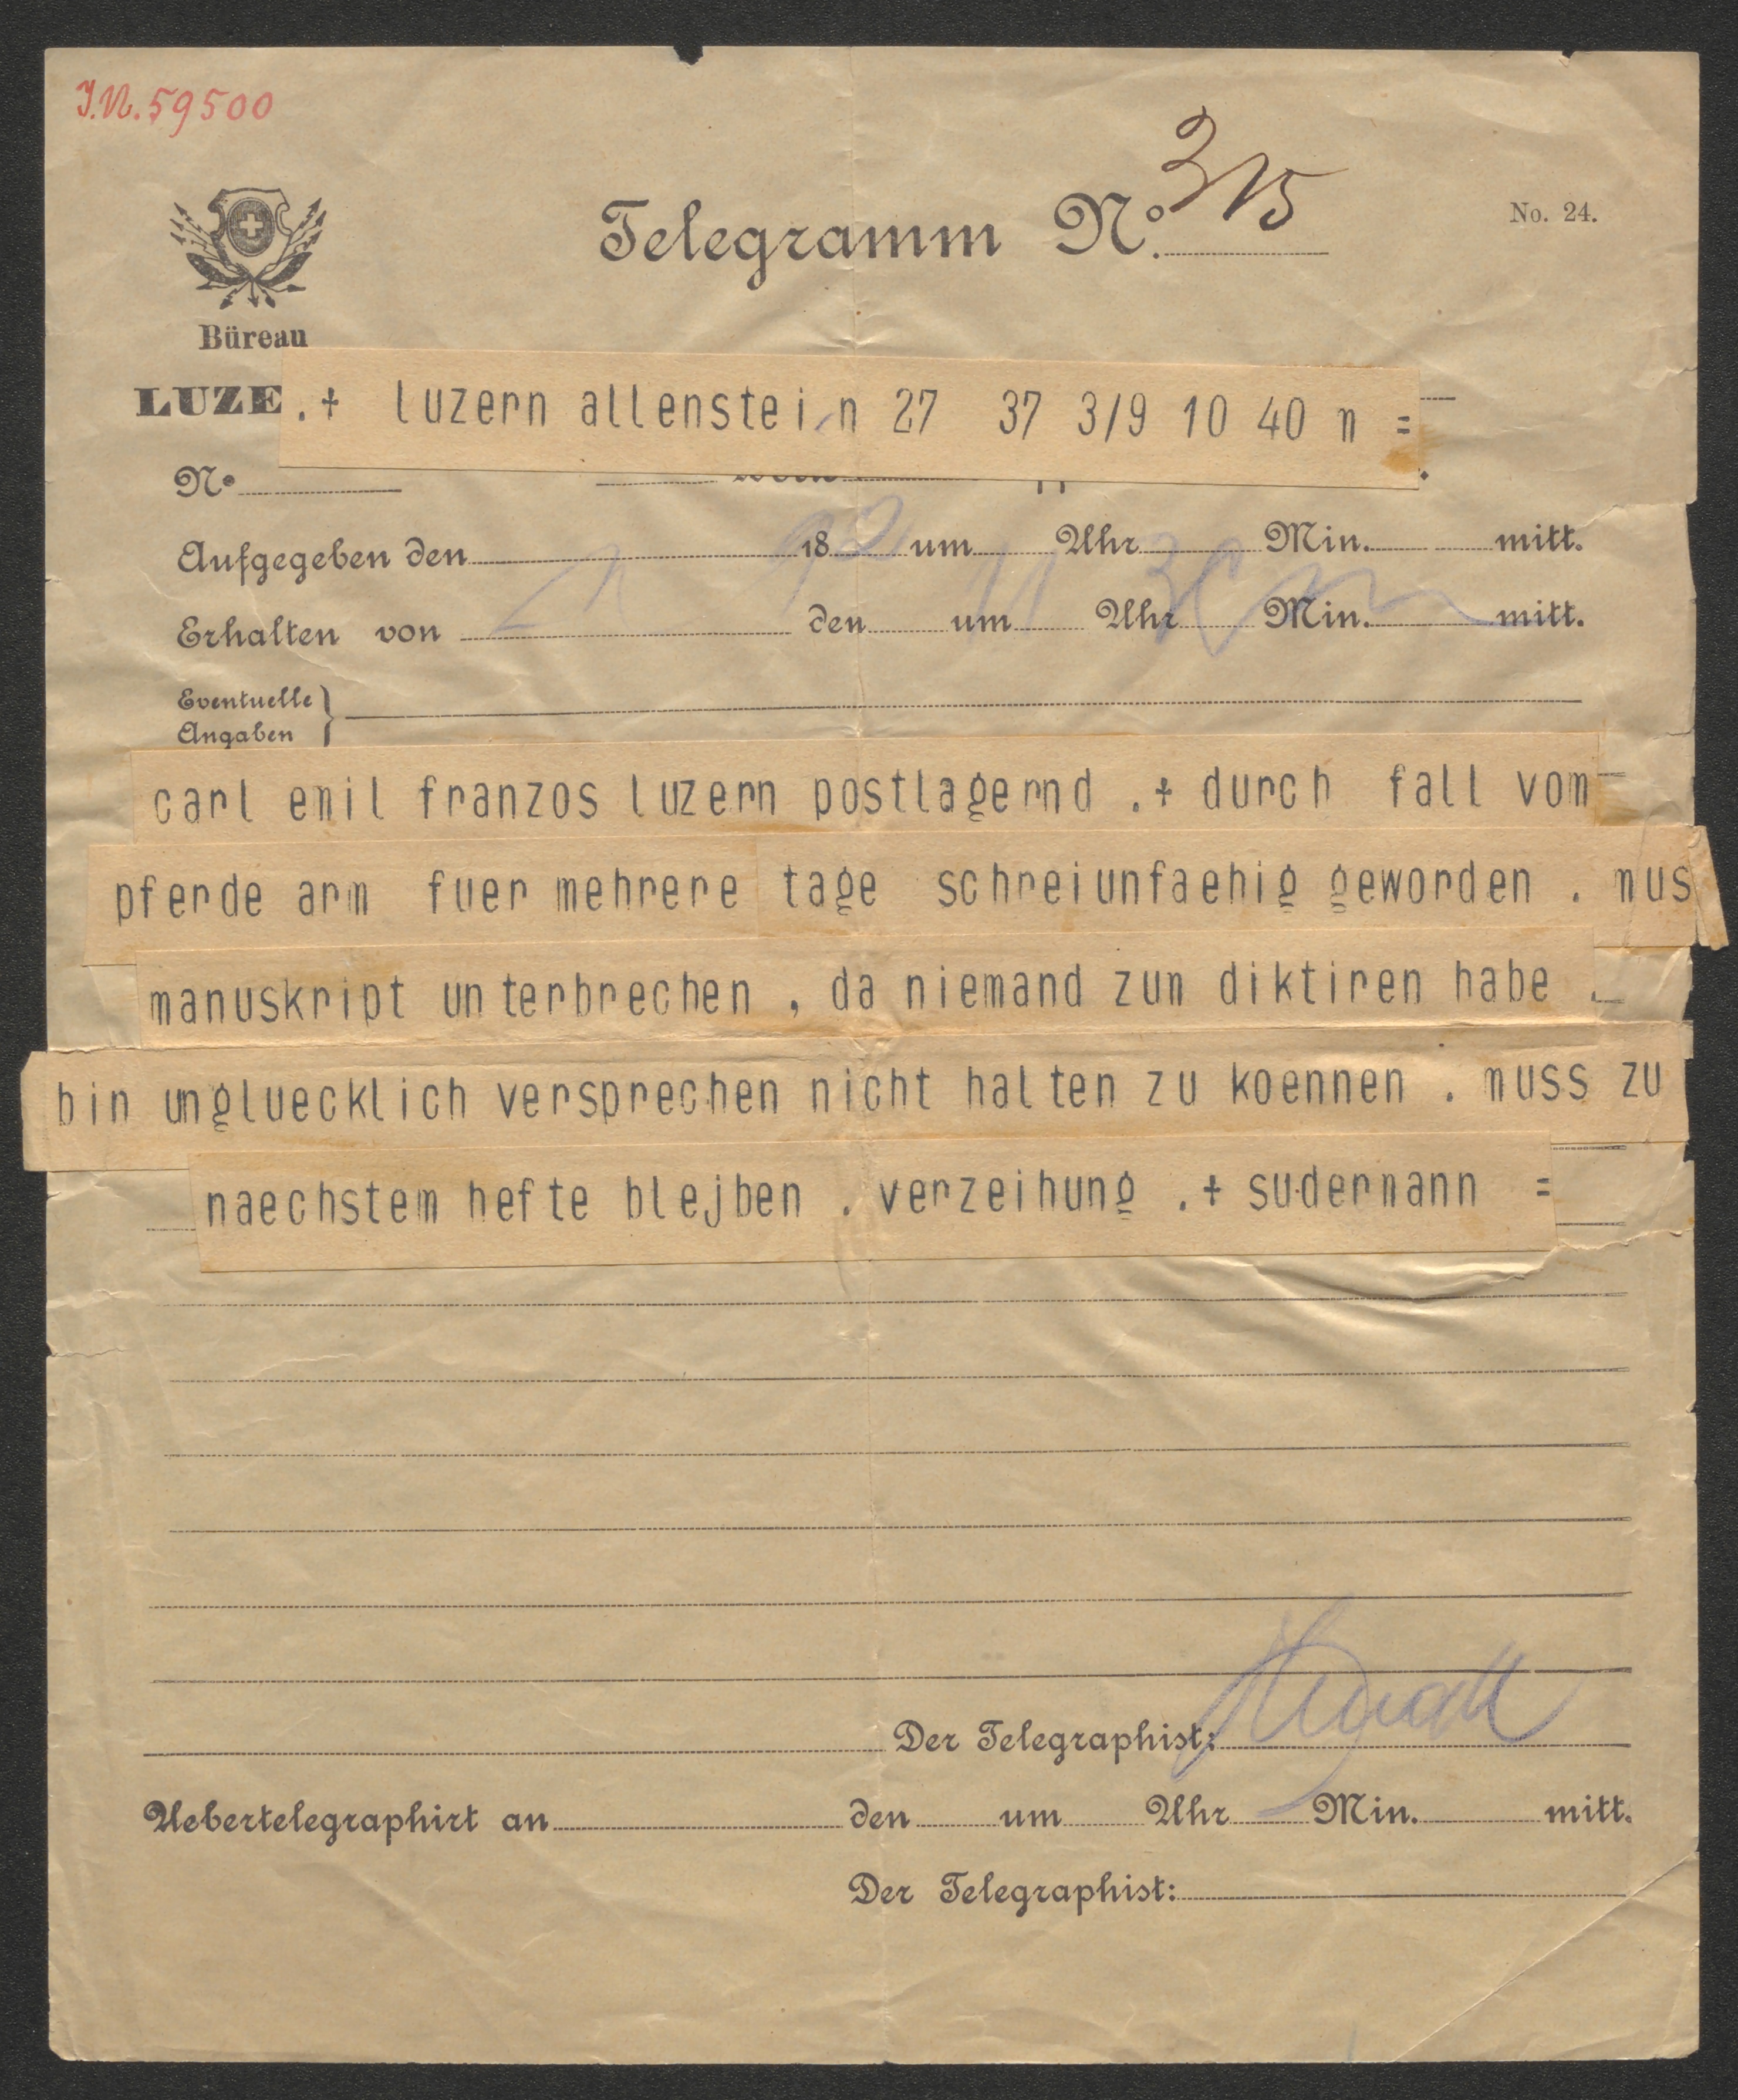 I.N. 59500
Telegramm No. 315
No. 24.
Büreau
LUZE
.+ luzern allenstein 27 37 3/9 10 40 n =
No
Aufgegeben den 1892 um Uhr Min. mitt.
Erhalten von den um 11 Uhr 30 Min. mitt.
Eventuelle
Angaben
carl emil franzos luzern postlagernd .+ durch fall vom
pferde arm fuer mehrere tage schreiunfaehig geworden . mus
manuskript unterbrechen , da niemand zum diktiren habe .
bin ungluecklich versprechen nicht halten zu koennen . muss zu
naechstem hefte blejben . verzeihung .+ sudermann =
Der Telegraphist:
Uebertelegraphirt an den um Uhr Min. mitt.
Der Telegraphist: